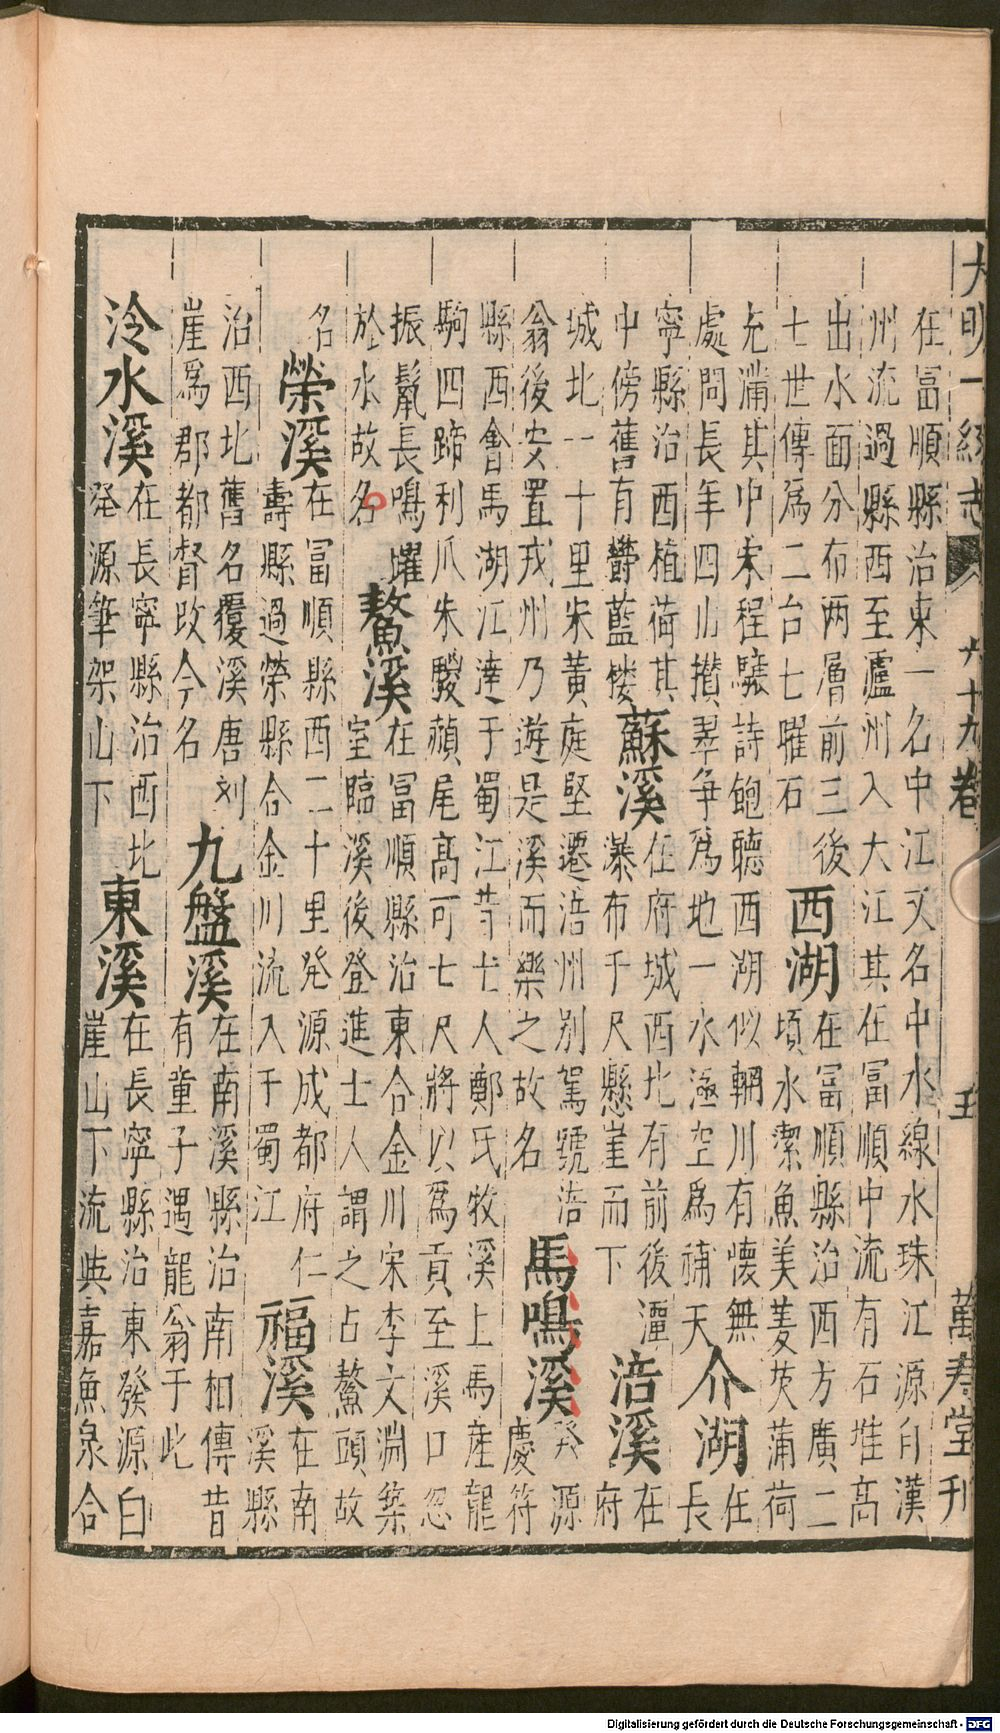 大明一統志 六十九卷 五 萬壽堂刊
在富順縣治東一名中江又名中水線水珠江源自漢
州流過縣西至瀘州入大江其在富順中流有石堆高
出水面分布两層前三後
七世傳為二台七曜石
西湖
在富順縣治西方廣二
頃水潔魚美菱芡蒲荷
充滿其中宋程驤詩飽聽西湖似輞川有懷無
處問長年四儿攢翠争為地一水涵空為補天
介湖
在
長
寧縣治西植荷其
中傍舊有欝藍楼
蘇溪
在府城西北有前後潭
瀑布千尺懸崖而下
涪溪
在
府
城北一十里宋黃庭堅遷涪州别駕號涪
翁後安置戎州乃遊是溪而樂之故名
馬鳴溪
発源
慶符
縣西會馬湖江達于蜀江昔土人鄭氏牧溪上馬産龍
駒四蹄利爪朱鬉蘋尾高可七尺將以為貢至溪口忽
振鬣長鳴躍
於水故名
鰲溪
在富順縣治東合金川宋李文淵築
室臨溪後登進士人謂之占鰲頭故
名
榮溪
在富順縣西二十里発源成都府仁
壽縣過榮縣合金川流入于蜀江
福溪
在南
溪縣
治西北舊名覆溪唐刘
崖為郡都督改今名
九盤溪
在南溪縣治南相傳昔
有童子遇龍翁于此
冷水溪
在長寧縣治西北
発源筆架山下
東溪
在長寧縣治東發源白
崖山下流與嘉魚泉合
Digitalisierung gefördert durch die Deutsche Forschungsgemeinschaft - DFG